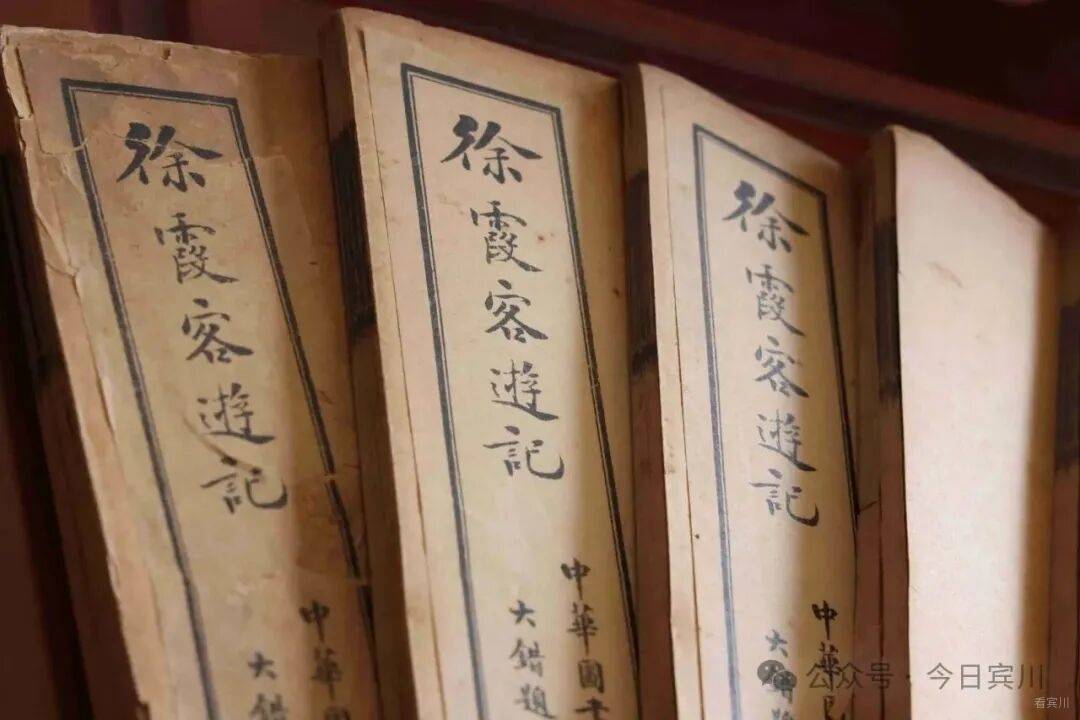 徐霞客遊記
中華
大錯
徐霞客遊記
中華國
大錯題
徐霞客遊記
中華
大錯
公众号 · 今日宾川
看宾川